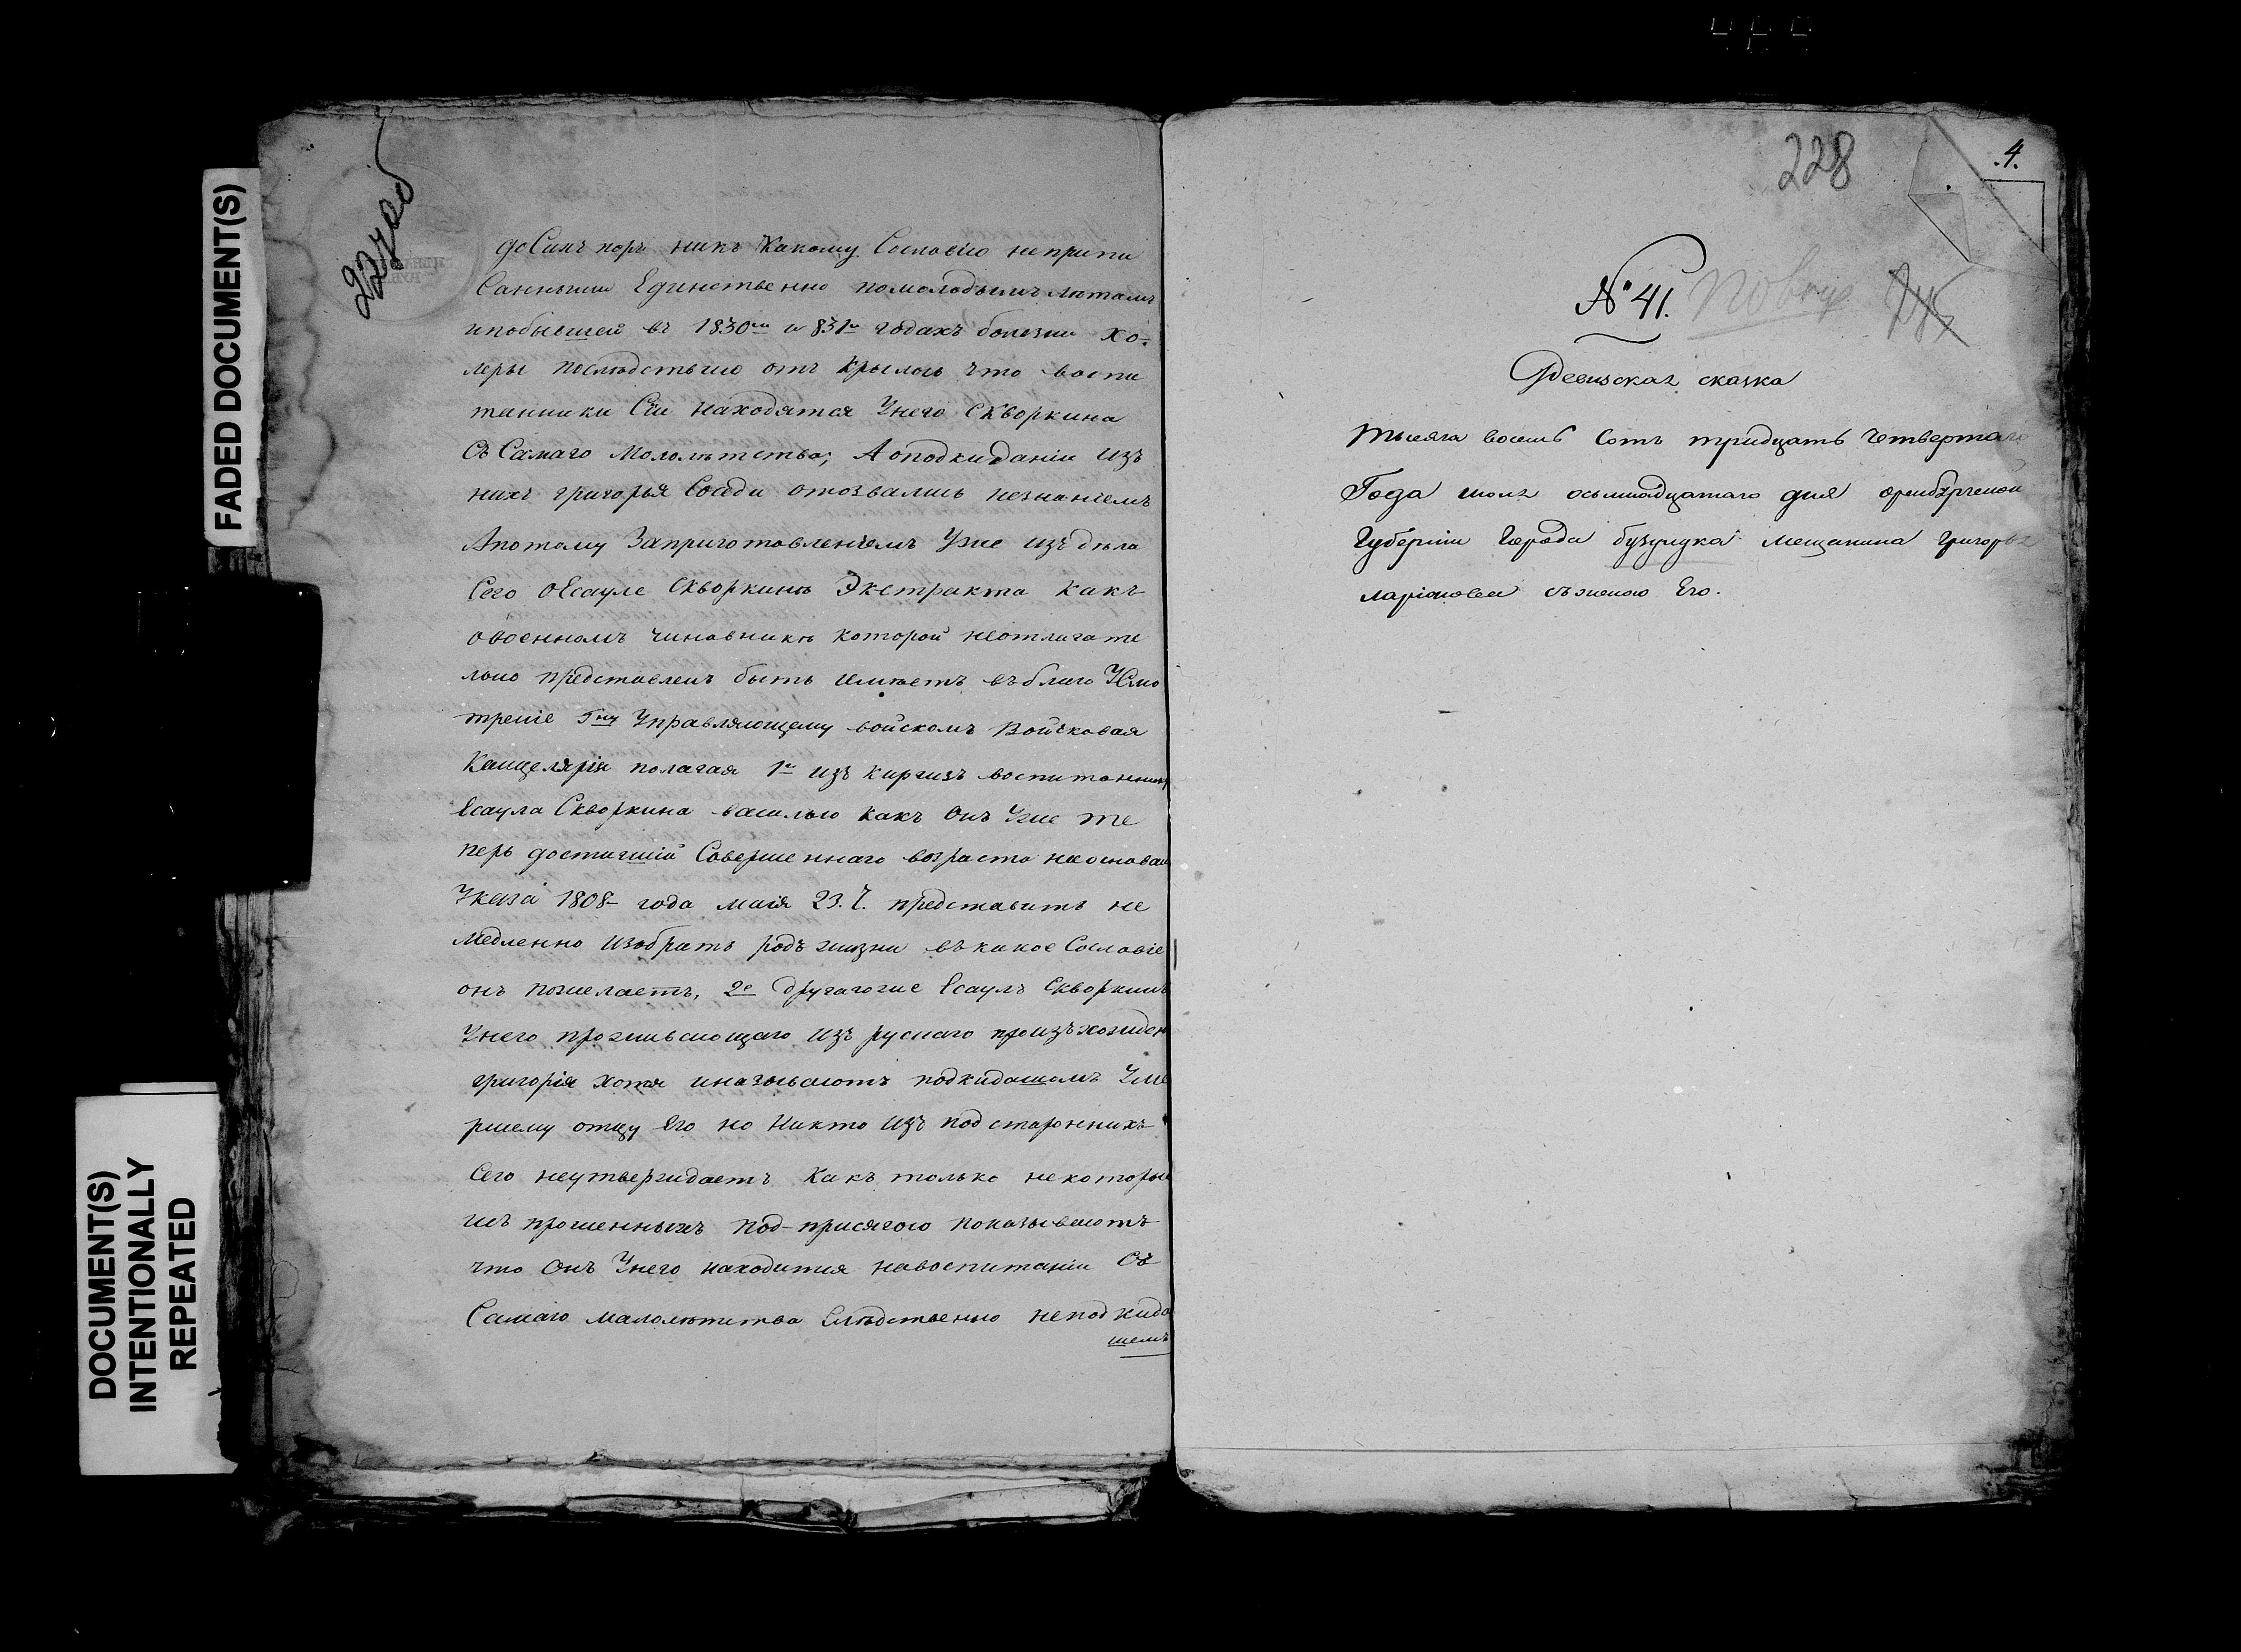 FADED DOCUMENT(S)
DOCUMENT(S)
INTENTIONALLY
REPEATED
227 об
доСихъ поръ никъ Какому Сословію неприпи
Санными Единственно помолодымъ лѣтамъ
ипобывшей въ 1830мъ и 831м годахъ болезни хо-
леры послѣдствию отъ крылось что воспи
танники Сіи находятся Унего Скворкина
СъСамаго Мололѣтства; Аоподкиданіи Изъ
нихъ григорья Соседи отозвались незнаніемъ
Апотому Заприготовленіемъ Уже изъ дѣла
Сего оЕсауле Скворкинѣ Экстракта Какъ
овоенномъ чиновникѣ который неотлагате
льно представленъ быть имѣетъ въ благо Усмо
треніе Гну Управляющему войскомъ Войсковая
Канцелярія полагая 1е изъ киргизъ воспитанник
Есаула Скворкина василью какъ Онъ Уже те
перь достигшій Совершеннаго возраста наоснован
Указа 1808 года маія 23. Ч. представить не
медленно Избрать родъ жизни въ какое Сословіе
онъ пожелаетъ, 2е другагоже Есаулъ Скворкинъ
Унего проживающаго Изъ рускаго произъхожден
григорія хотя иназываютъ подкидашомъ Уме
ршему отцу Его но Никто Изъ под старонникъ
Сего неутверждаетъ Какъ только некоторы
изъ прошенныхъ под-присягою показываютъ
что Онъ Унего находится навоспитаніи Съ
Самаго малолѣтства Слѣдственно неподкида
шемъ
228
.4.
№ 41.
Ревизская сказка
Тысяча восемь Сотъ тридцать четвертаго
Года июля осьмнадцатаго дня оренбургской
Губерніи Города бузулука мещанина Григорья
ларіонова съженою Его.